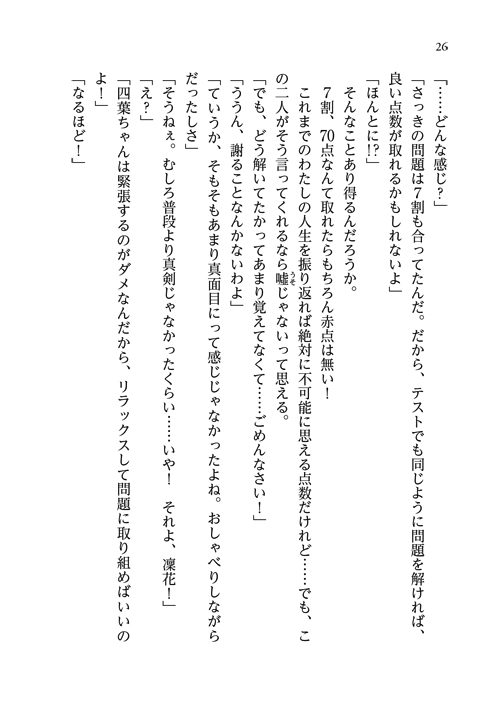 26
「……どんな感じ？」
「さっきの問題は７割も合ってたんだ。だから、テストでも同じように問題を解ければ、
良い点数が取れるかもしれないよ」
「ほんとに!?」
そんなことあり得るんだろうか。
７割、70点なんて取れたらもちろん赤点は無い！
これまでのわたしの人生を振り返れば絶対に不可能に思える点数だけれど……でも、こ
の二人がそう言ってくれるなら嘘じゃないって思える。
うそ
「でも、どう解いてたかってあまり覚えてなくて……ごめんなさい！」
「ううん、謝ることなんかないわよ」
「ていうか、そもそもあまり真面目にって感じじゃなかったよね。おしゃべりしながら
だったしさ」
「そうねぇ。むしろ普段より真剣じゃなかったくらい……いや！　それよ、凜花！」
「え？」
「四葉ちゃんは緊張するのがダメなんだから、リラックスして問題に取り組めばいいの
よ！」
「なるほど！」